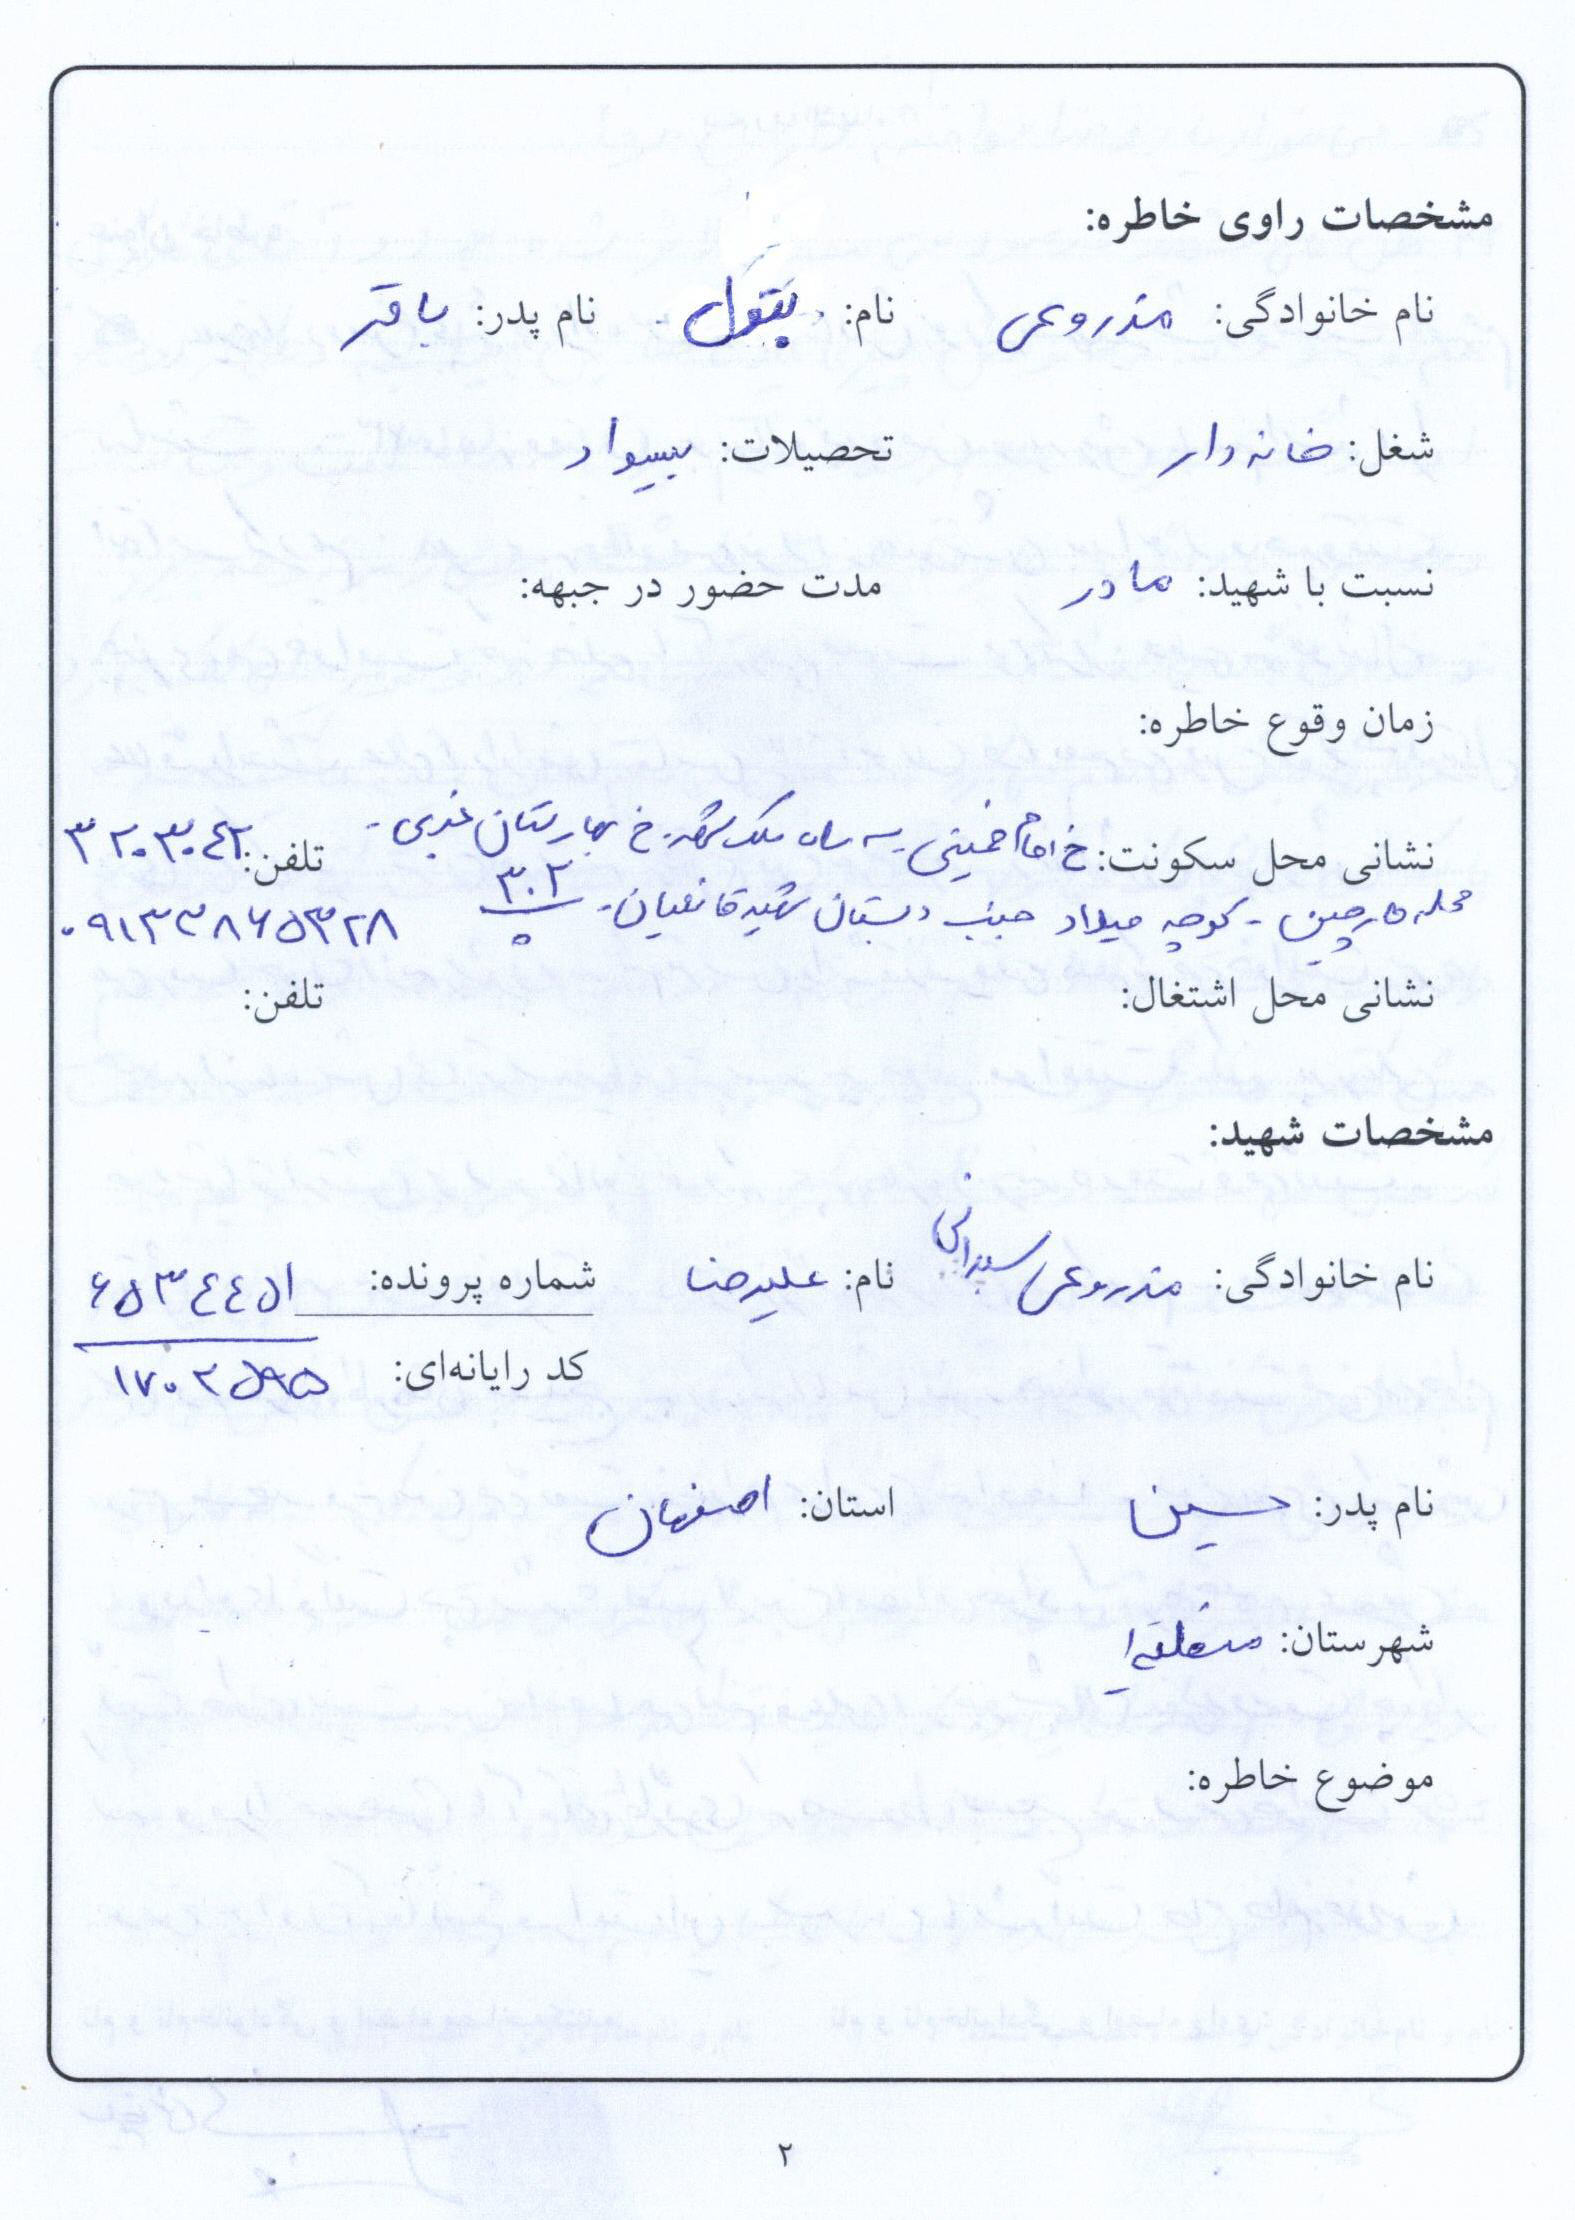 مشخصات راوی خاطره:
نام خانوادگی: مزروعی نام: بتول نام پدر: باقر
شغل: خانه دار تحصیلات: بیسواد
نسبت با شهید: مادر مدت حضور در جبهه:
زمان وقوع خاطره:
نشانی محل سکونت: خ امام خمینی - سه راه ملک شهر - خ بهارستان غربی - تلفن: ۳۲۰۳۰۴۲
محله - کوچه میلاد جنب دبستان شهید قانعیان - پ ۳۰۲ ۰۹۱۳۳۸۶۵۳۲۸
نشانی محل اشتغال: تلفن:
مشخصات شهید:
نام خانوادگی: مزروعی سبزانی نام: علیرضا شماره پرونده: ۶۵۳۴۴۵۱
کد رایانه‌ای: ۱۷۰۲۵۹۵
نام پدر: حسین استان: اصفهان
شهرستان: منطقه ۱
موضوع خاطره:
۲